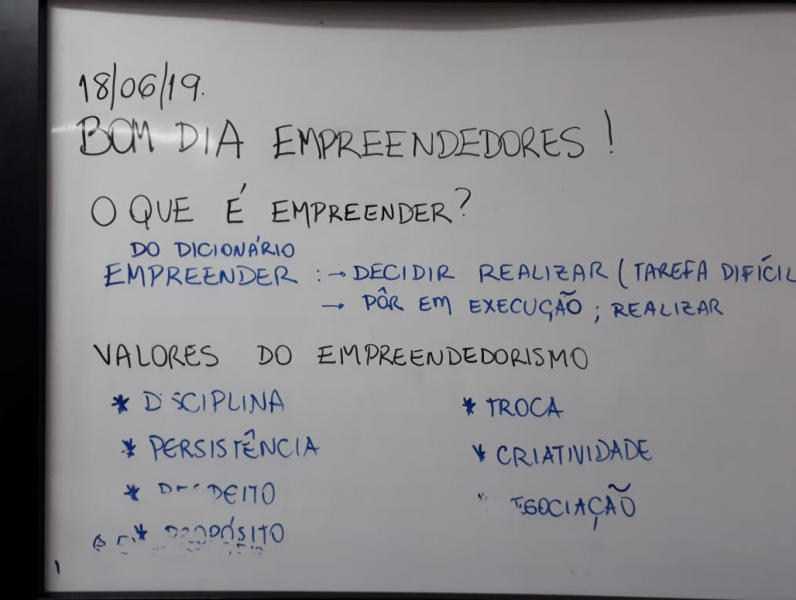 18/06/19.
BOM DIA EMPREENDEDORES!
O QUE É EMPREENDER?
DO DICIONÁRIO
EMPREENDER : → DECIDIR REALIZAR (TAREFA DIFÍCIL
→ PÔR EM EXECUÇÃO ; REALIZAR
VALORES DO EMPREENDEDORISMO
* DISCIPLINA
* PERSISTÊNCIA
*
* PROPÓSITO
* TROCA
* CRIATIVIDADE